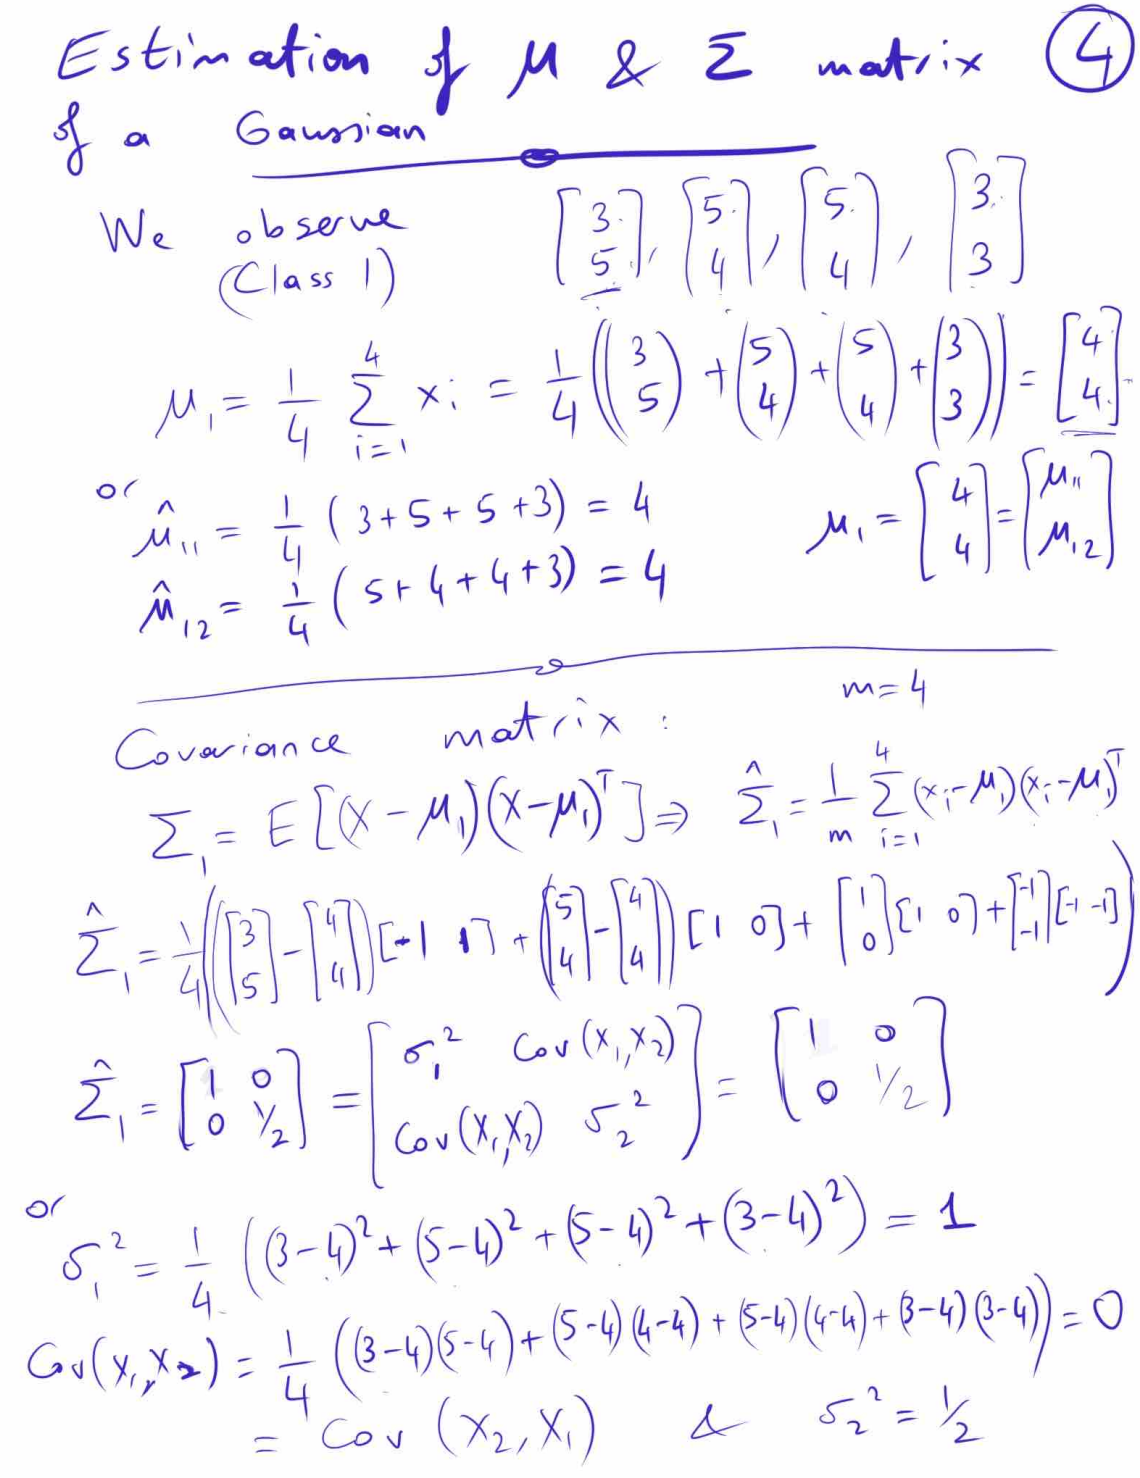 Estimation of μ & Σ matrix ④
of a Gaussian
We observe [3 5], [5 4], [5 4], [3 3]
(Class 1)
μ₁ = 1/4 Σ_{i=1}^{4} xᵢ = 1/4 ((3 5) + (5 4) + (5 4) + (3 3)) = [4 4]
or
μ̂₁₁ = 1/4 (3+5+5+3) = 4 μ₁ = [4 4] = [μ₁₁ μ₁₂]
μ̂₁₂ = 1/4 (5+4+4+3) = 4
m=4
Covariance matrix :
Σ₁ = E[(X-μ₁)(X-μ₁)ᵀ] ⇒ Σ̂₁ = 1/m Σ_{i=1}^{4} (xᵢ-μ₁)(xᵢ-μ₁)ᵀ
Σ̂₁ = 1/4 (([3 5] - [4 4]) [-1 1] + ([5 4] - [4 4]) [1 0] + [1 0] [1 0] + [-1 -1] [-1 -1])
Σ̂₁ = [1 0 0 1/2] = [σ₁² Cov(X₁,X₂) Cov(X₁,X₂) σ₂²] = [1 0 0 1/2]
or
σ₁² = 1/4 ((3-4)² + (5-4)² + (5-4)² + (3-4)²) = 1
Cov(X₁,X₂) = 1/4 ((3-4)(5-4) + (5-4)(4-4) + (5-4)(4-4) + (3-4)(3-4)) = 0
= Cov (X₂,X₁) & σ₂² = 1/2